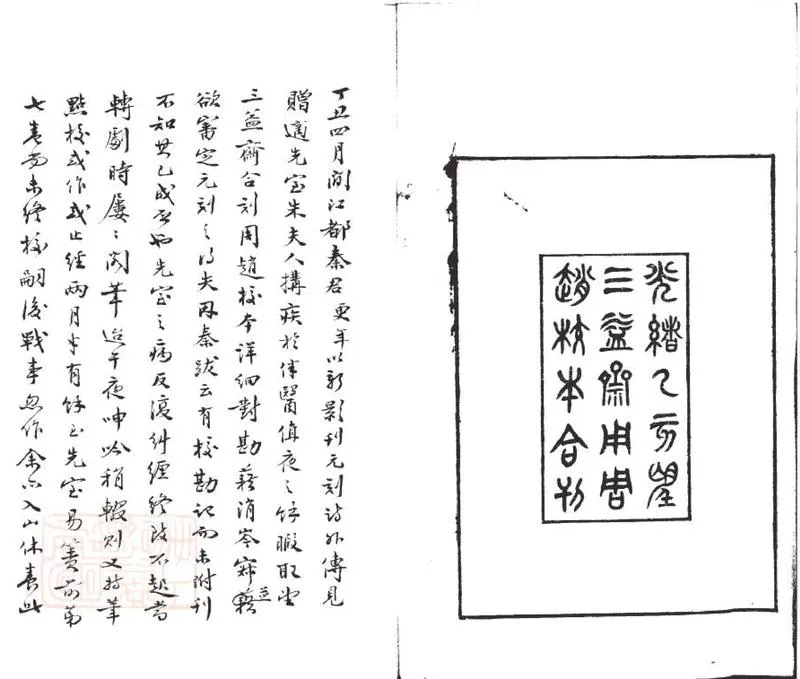 光緒乙亥望
三益齋用周
趙校本合刊
丁丑四月閒江都秦君更年以新影刊元刻詩外傳見
贈適先室朱夫人搆疾於伴醫值夜之餘暇取望
三益齋合刻周趙校本詳細對勘藉消岑寂並藉
欲審定元刻之得失因秦跋云有校勘記而未附刊
不知其已成否也先室之病反復糾纏終致不起當
轉劇時屢々閣筆迨午夜呻吟稍輟則又持筆
點校或作或止經兩月半有餘至先室易簀前第
七卷尚未終校嗣後戰事忽作余亦入山休養此